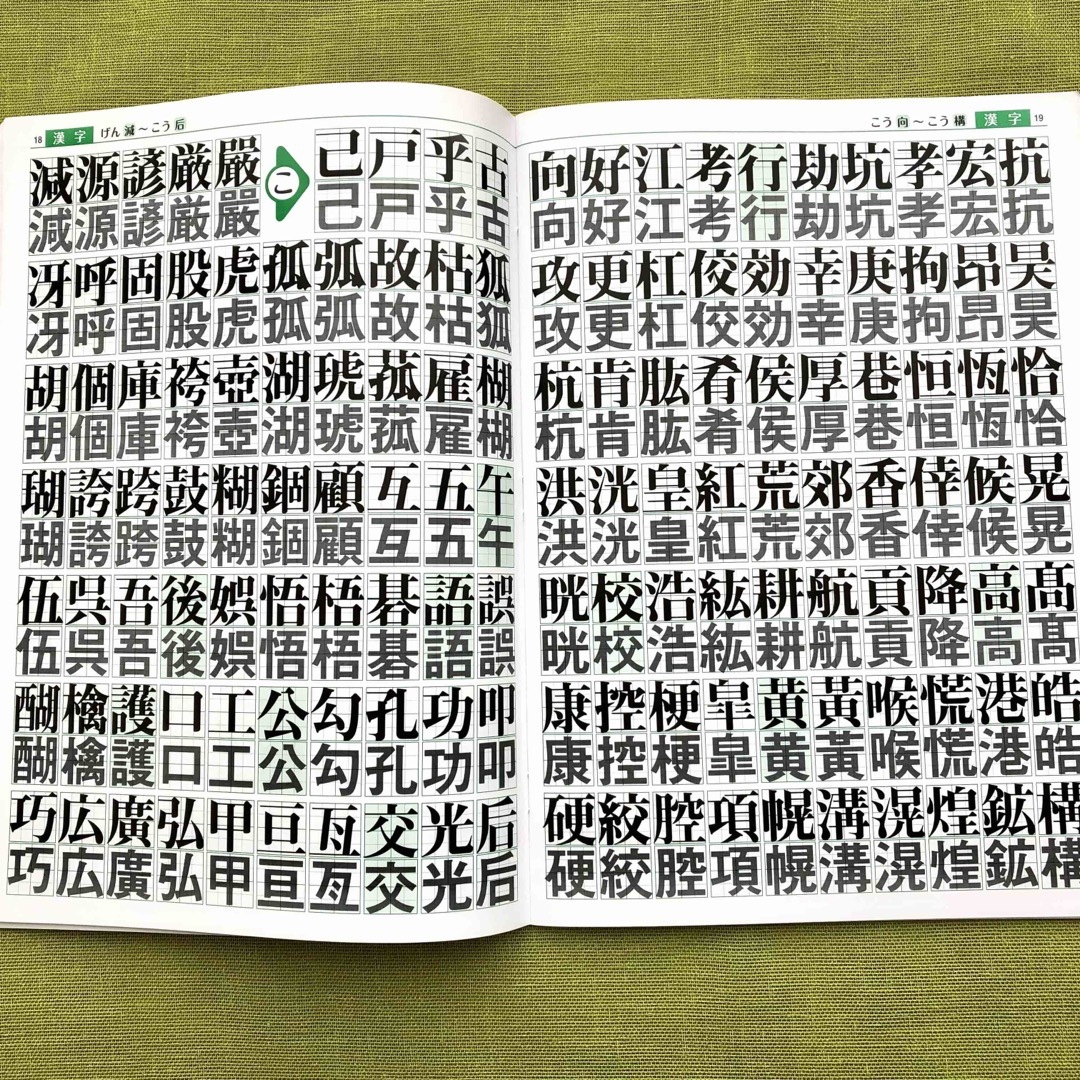 18 漢字 げん 減〜こう 后
減源諺厳嚴 こ 己戸乎古
減源諺厳嚴 己戸乎古
冴呼固股虎孤弧故枯狐
冴呼固股虎孤弧故枯狐
胡個庫袴壺湖琥菰雇楜
胡個庫袴壺湖琥菰雇楜
瑚誇跨鼓糊錮顧互五午
瑚誇跨鼓糊錮顧互五午
伍呉吾後娯悟梧碁語誤
伍呉吾後娯悟梧碁語誤
醐檎護口工公勾孔功叩
醐檎護口工公勾孔功叩
巧広廣弘甲亘亙交光后
巧広廣弘甲亘亙交光后
こう 向〜こう 構 漢字 19
向好江考行劫坑孝宏抗
向好江考行劫坑孝宏抗
攻更杠佼効幸庚拘昂昊
攻更杠佼効幸庚拘昂昊
杭肯肱肴侯厚巷恒恆恰
杭肯肱肴侯厚巷恒恆恰
洪洸皇紅荒郊香倖候晃
洪洸皇紅荒郊香倖候晃
晄校浩紘耕航貢降高髙
晄校浩紘耕航貢降高髙
康控梗皐黄黃喉慌港皓
康控梗皐黄黃喉慌港皓
硬絞腔項幌溝滉煌鉱構
硬絞腔項幌溝滉煌鉱構